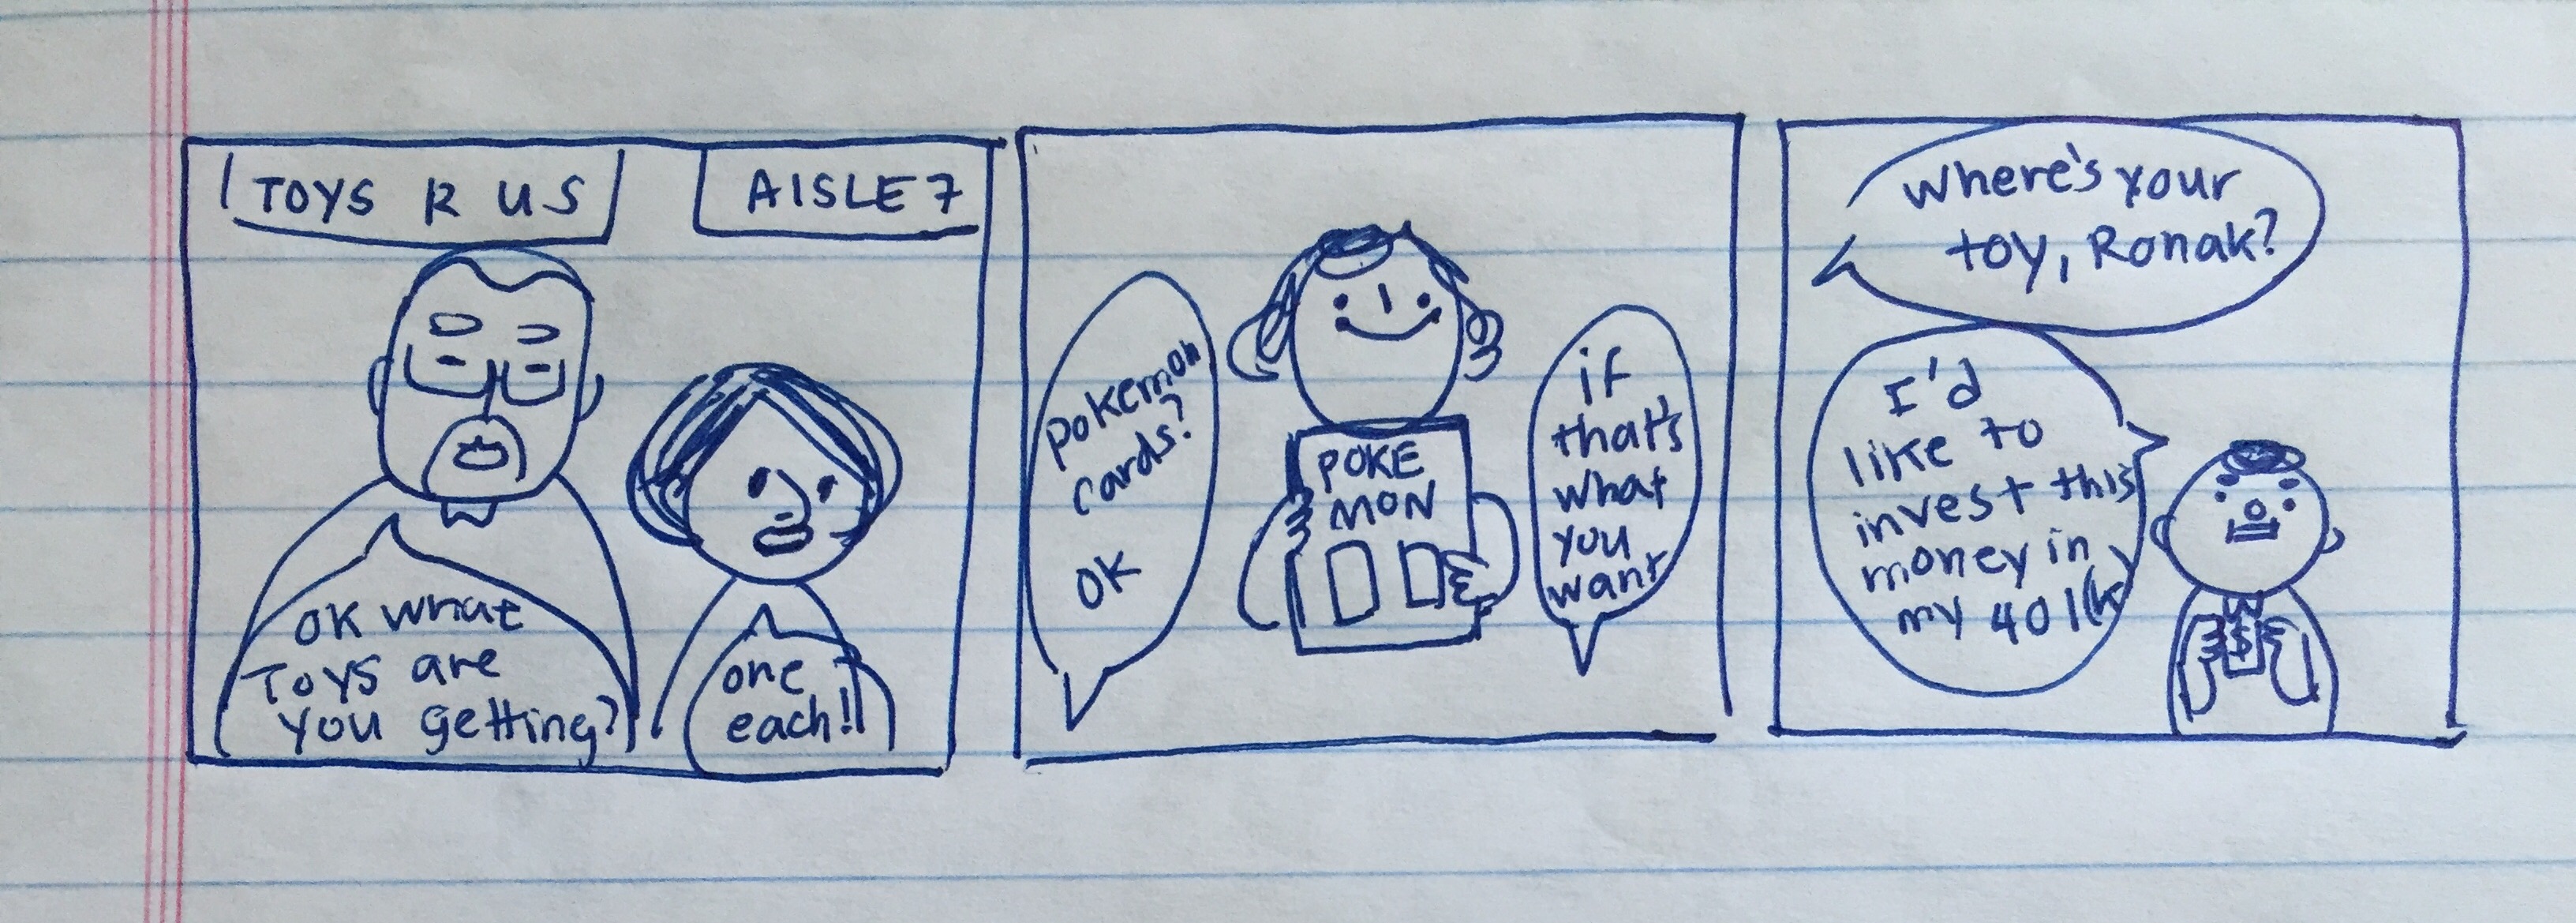 TOYS R US
AISLE 7
OK what
Toys are
you getting?
one
each!!
Pokemon
cards?
OK
POKE
MON
if
that's
what
you
want
Where's your
toy, Ronak?
I'd
like to
invest this
money in
my 401(k)
$